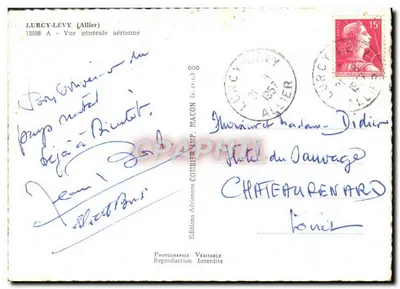 LURCY-LÉVY (Allier)
12558 A - Vue générale aérienne
Bon souvenir du
pays natal !
déjà à Bientôt.
Jean
Editions Aériennes COMBIER IMP. MACON
PHOTOGRAPHIE VÉRITABLE
Reproduction Interdite
LURCY-LEVY
1957
ALLIER
15F
Monsieur et Madame Didier
Hôtel du Sauvage
CHATEAURENARD
Loiret
CPAPHIL